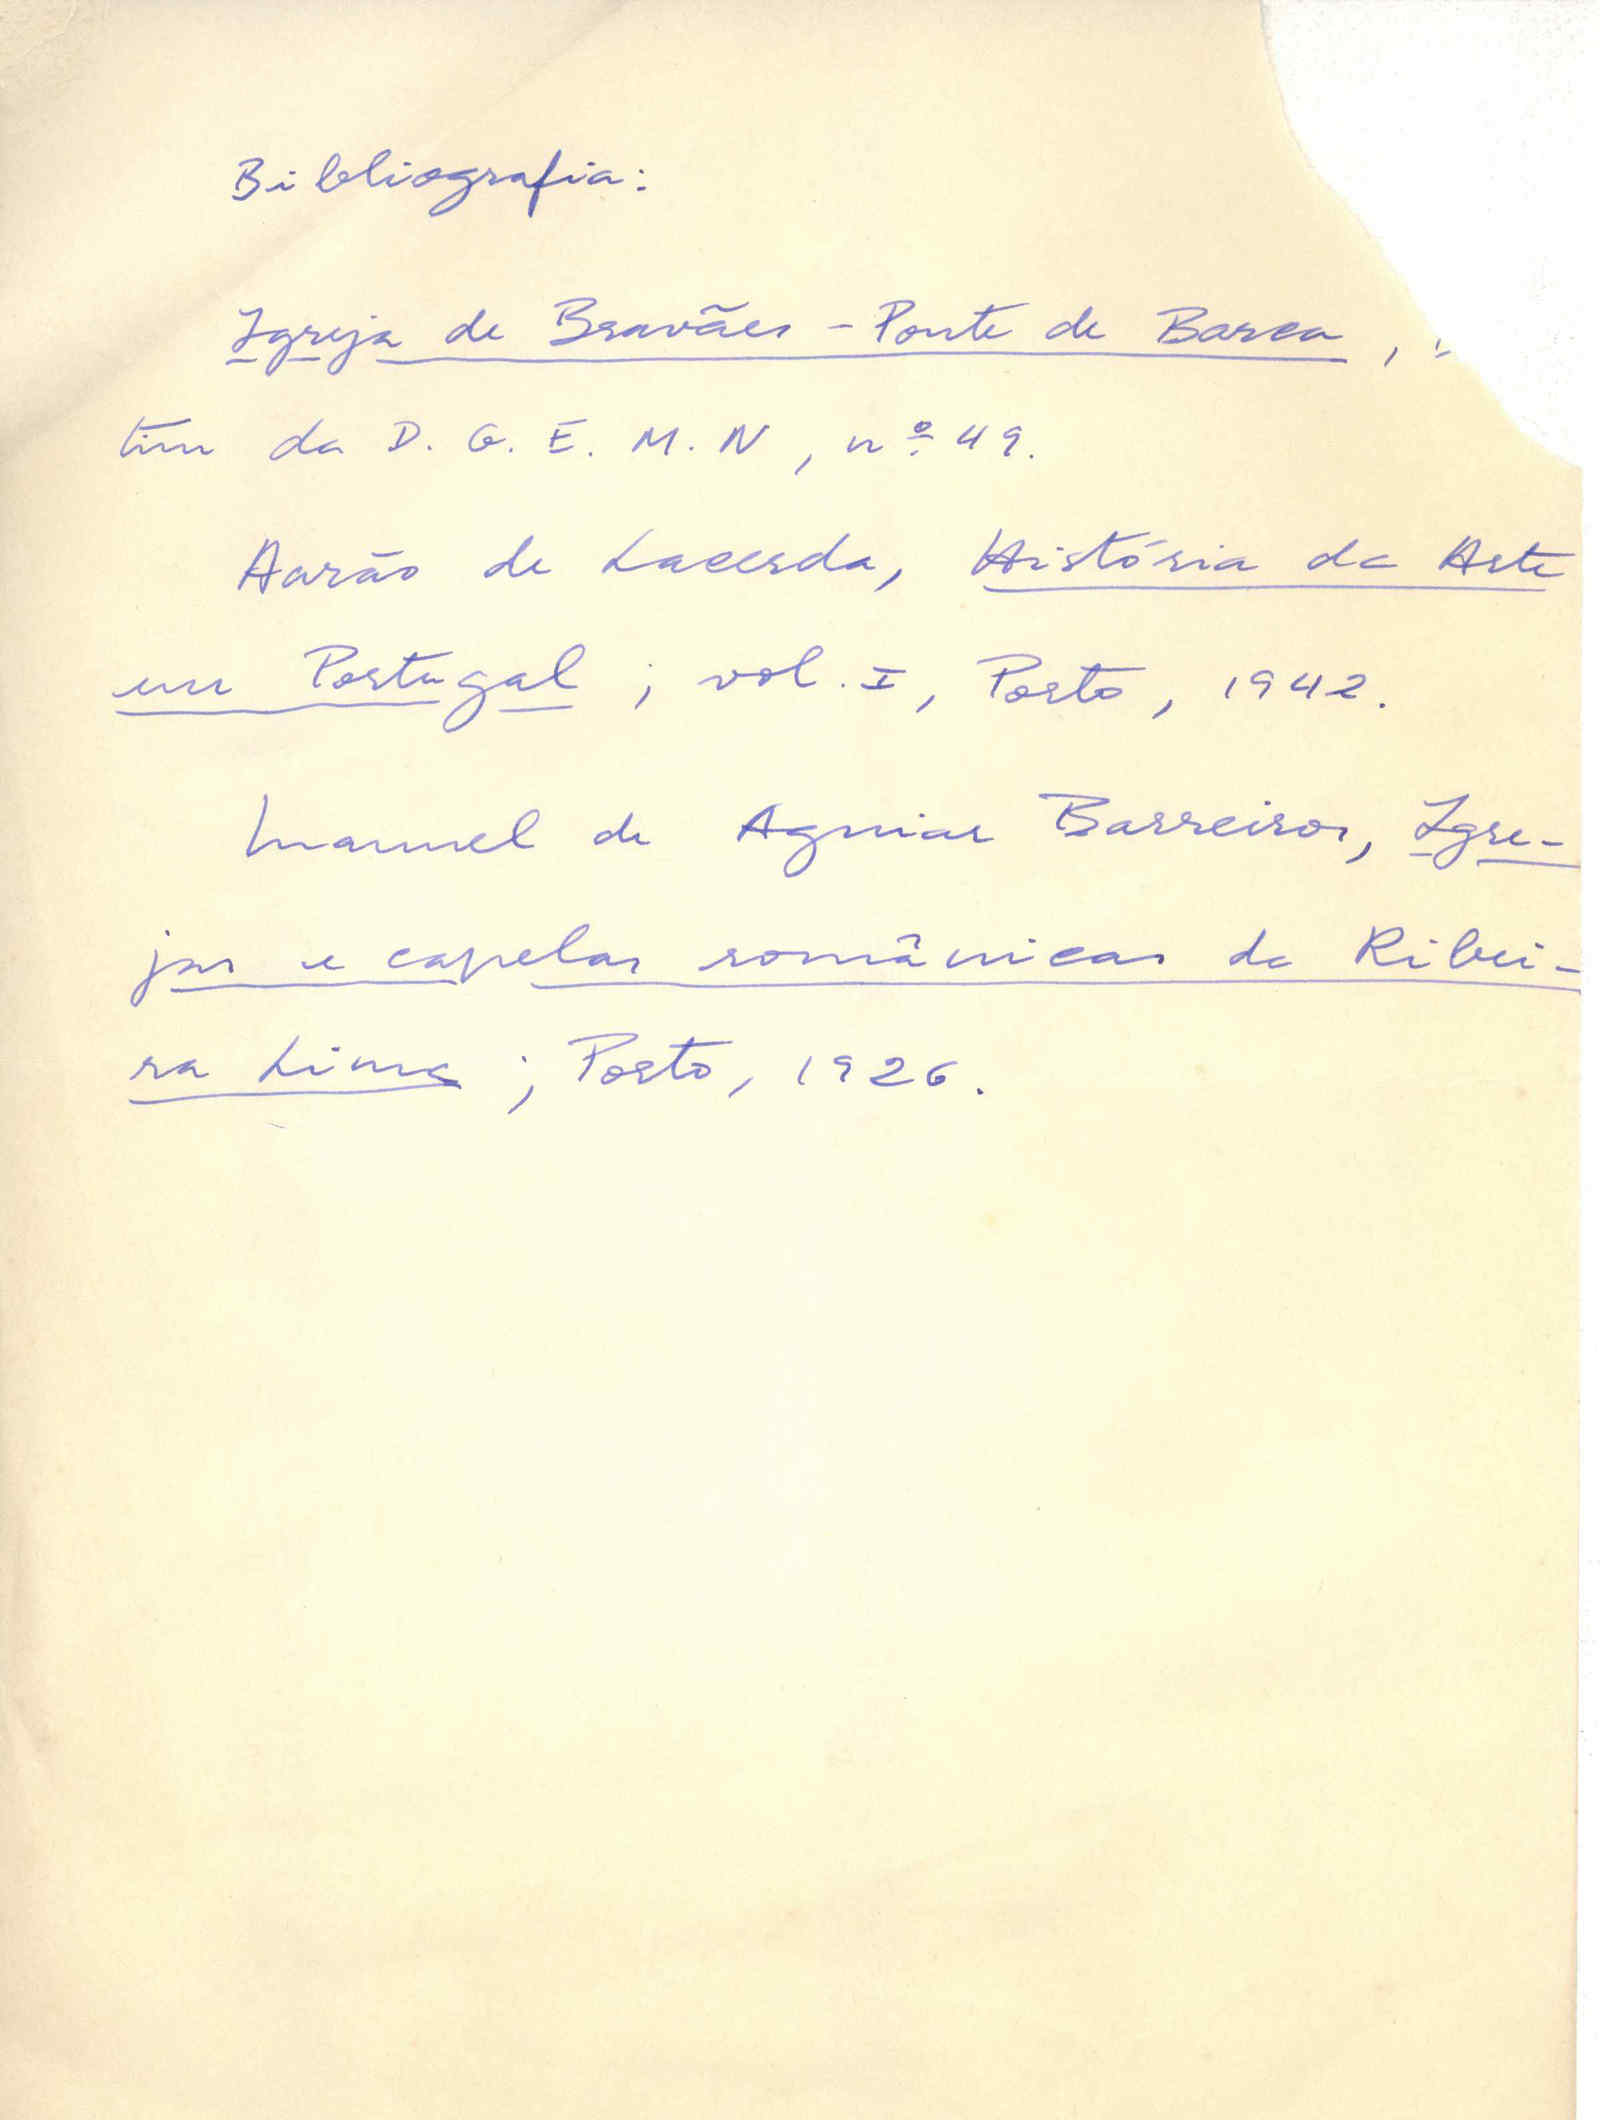 Bibliografia:
Igreja de Bravães - Ponte de Barca,
tim da D. G. E. M. N, nº 49.
Aarão de Lacerda, História da Arte
em Portugal; vol. I, Porto, 1942.
Manuel de Aguiar Barreiros, Igre-
jas e capelas românicas da Ribei-
ra Lima; Porto, 1926.